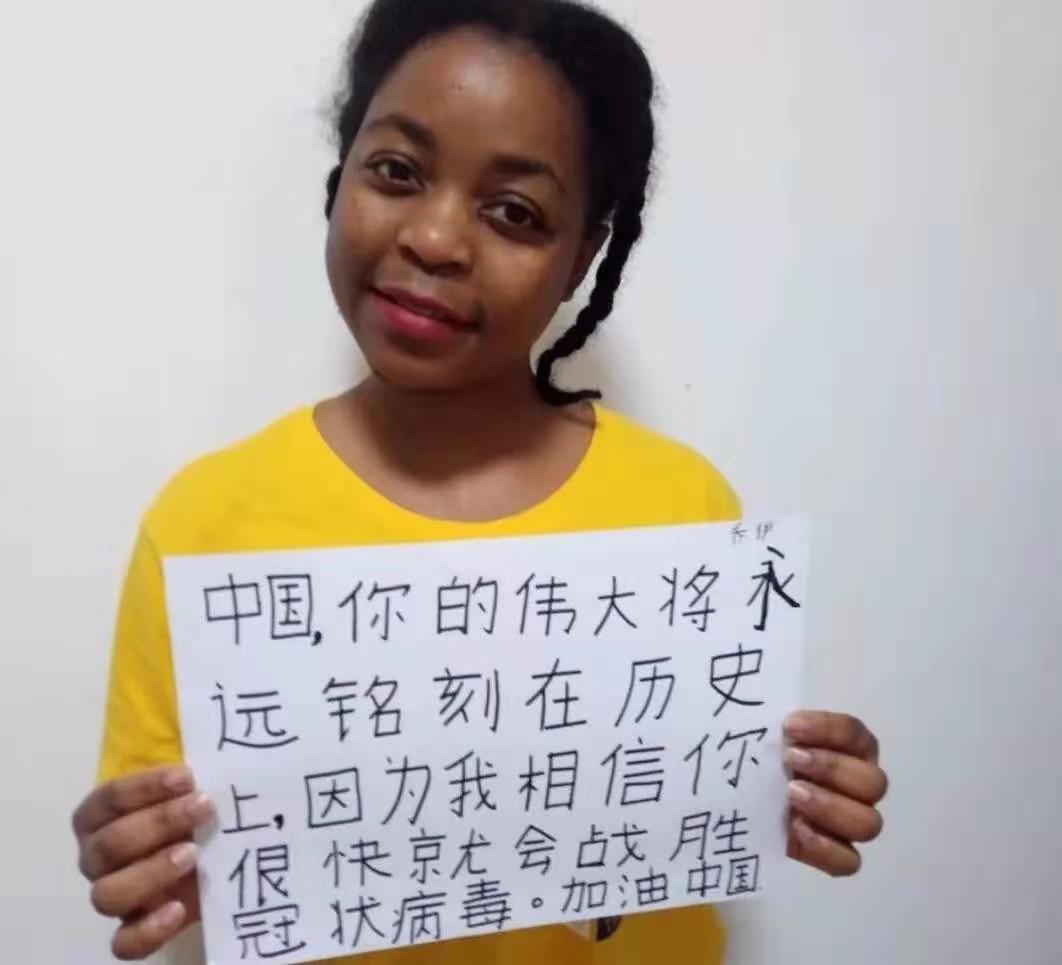 乔伊
中国,你的伟大将永
远铭刻在历史
上,因为我相信你
很快就会战胜
冠状病毒。加油中国